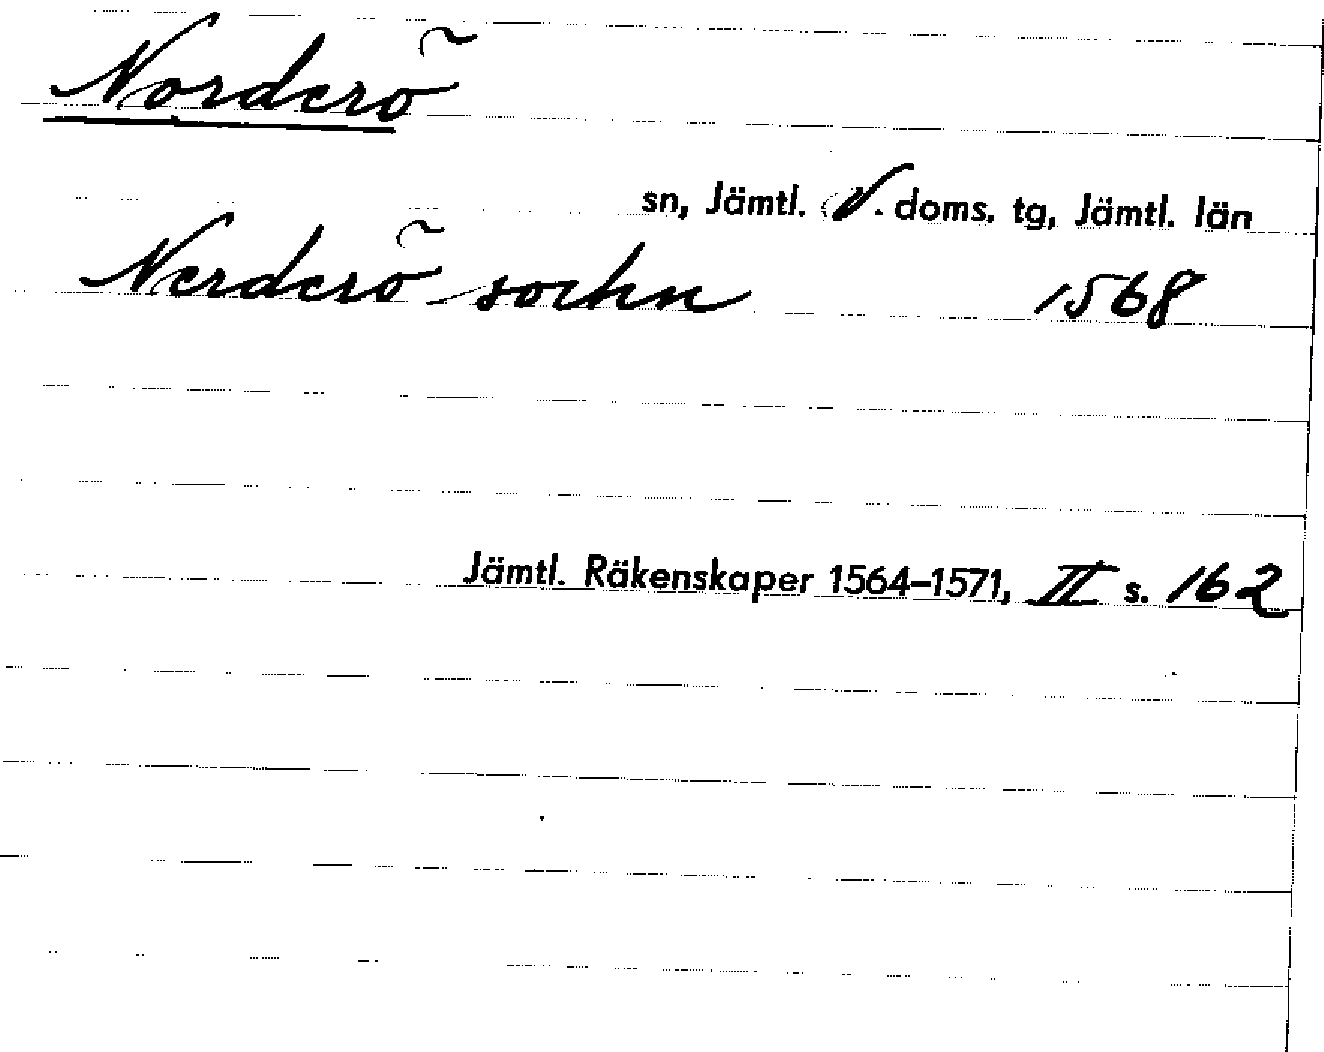 Norderö
sn, Jämtl. V. doms. tg, Jämtl. län
Nerderö sochn 1568
Jämtl. Räkenskaper 1564–1571, II s. 162